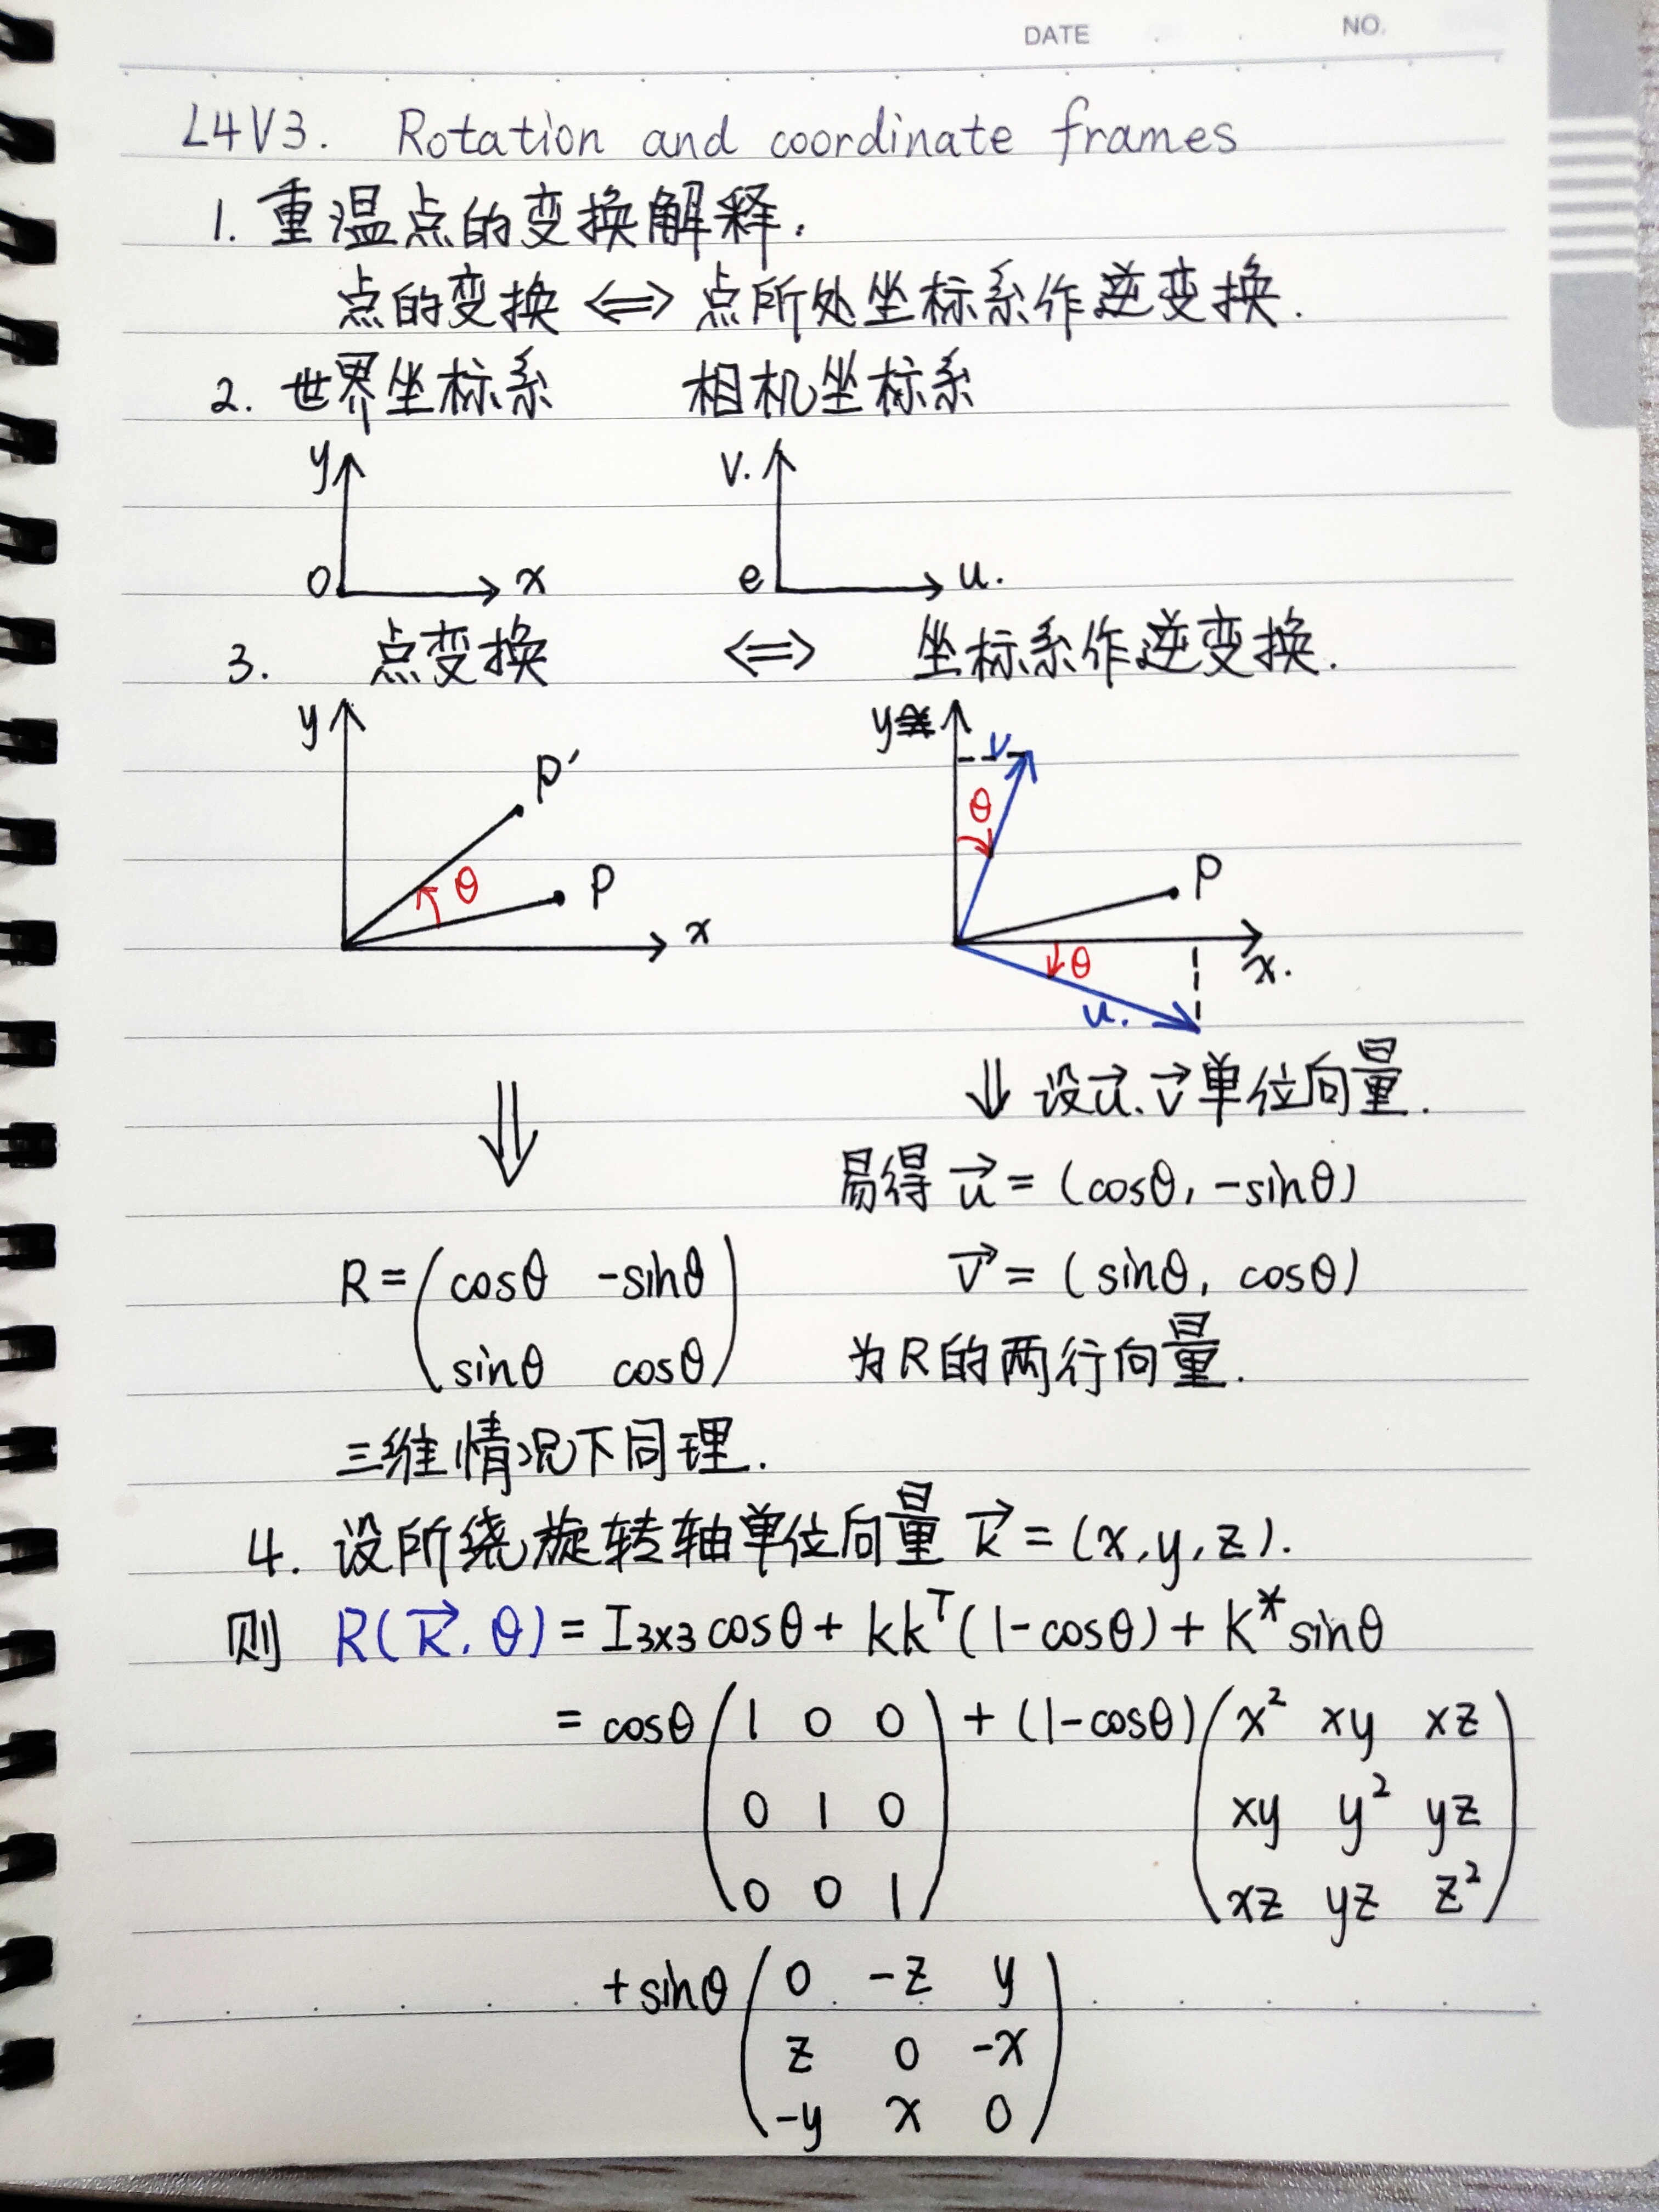 DATE . . NO.
L4V3. Rotation and coordinate frames
1. 重温点的变换解释.
点的变换 <=> 点所处坐标系作逆变换.
2. 世界坐标系 相机坐标系
y v.
0 x e u.
3. 点变换 <=> 坐标系作逆变换.
y P' y v
θ P θ P
x θ x.
u.
⇓ ⇓ 设u⃗.v⃗单位向量.
易得 u⃗ = (cosθ, -sinθ)
R = (cosθ -sinθ v⃗ = (sinθ, cosθ)
sinθ cosθ) 为R的两行向量.
三维情况下同理.
4. 设所绕旋转轴单位向量 k⃗ = (x,y,z).
则 R(k⃗.θ) = I₃ₓ₃ cosθ + kkᵀ(1-cosθ) + K* sinθ
= cosθ (1 0 0) + (1-cosθ) (x² xy xz
0 1 0 xy y² yz
0 0 1 xz yz z²)
+ sinθ (0 -z y
z 0 -x
-y x 0)